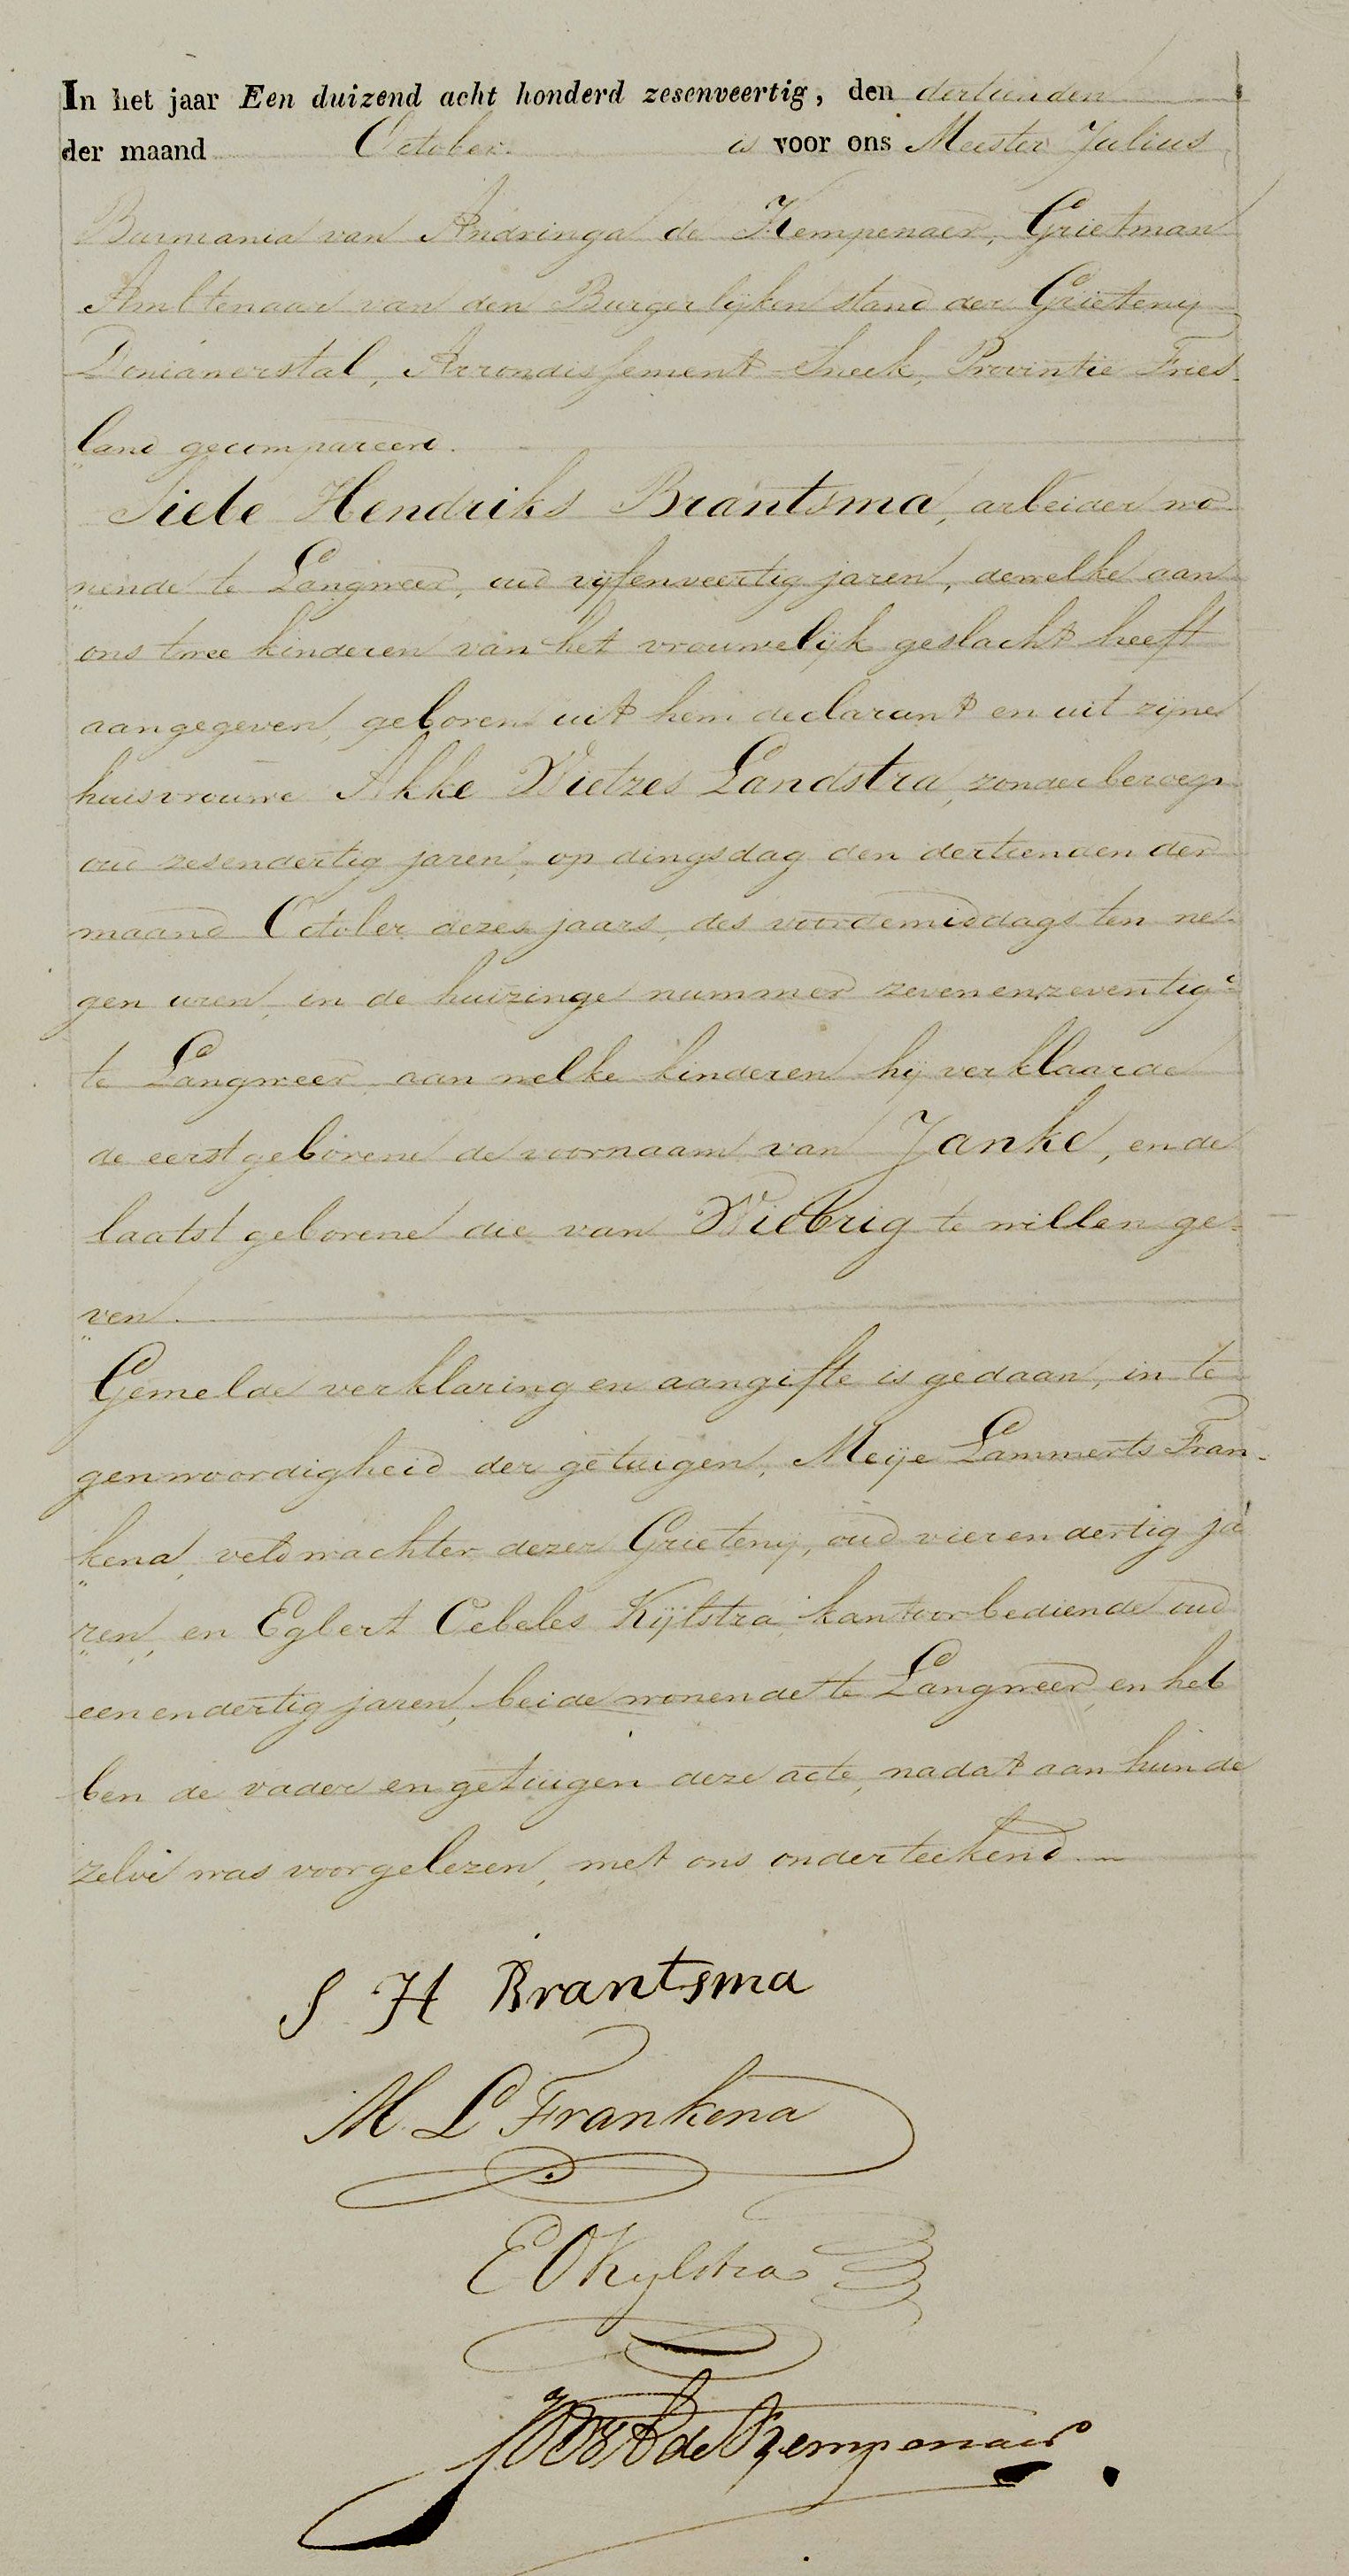 In het jaar Een duizend acht honderd zesenveertig, den dertienden
der maand October is voor ons Meester Julius
Burmania van Andringa de Kempenaer, Grietman
Ambtenaar van den Burgerlijken stand der Grietenij
Doniawerstal, Arrondissement Sneek, Provintie Fries-
land gecompareerd.
Siebe Hendriks Brantsma, arbeider wo-
nende te Langweer, oud vijfenveertig jaren, dewelke aan
ons twee kinderen van het vrouwelijk geslacht heeft
aangegeven, geboren uit hem declarant en uit zijne
huisvrouwe Akke Wietzes Landstra, zonder beroep
oud zesendertig jaren, op dingsdag den dertienden der
maand October dezes jaars, des voordemiddags ten ne-
gen uren, in de huizinge nummer zevenenzeventig c
te Langweer aan welke kinderen hij verklaarde
de eerstgeborene de voornaam van Janke, en de
laatst geborene die van Wiebrig te willen ge-
ven.
Gemelde verklaring en aangifte is gedaan, in te
genwoordigheid der getuigen, Meije Lammerts Fran-
kena, veldwachter dezer Grietenij, oud vierendertig ja
ren, en Egbert Oebeles Kijlstra, kantoorbediende oud
eenendertig jaren, beide wonende te Langweer, en heb
ben de vader en getuigen deze acte, nadat aan hun de
zelve was voorgelezen, met ons onderteekend.
S H Brantsma
M. L Frankena
E O Kylstra
JBVA de Kempenaer